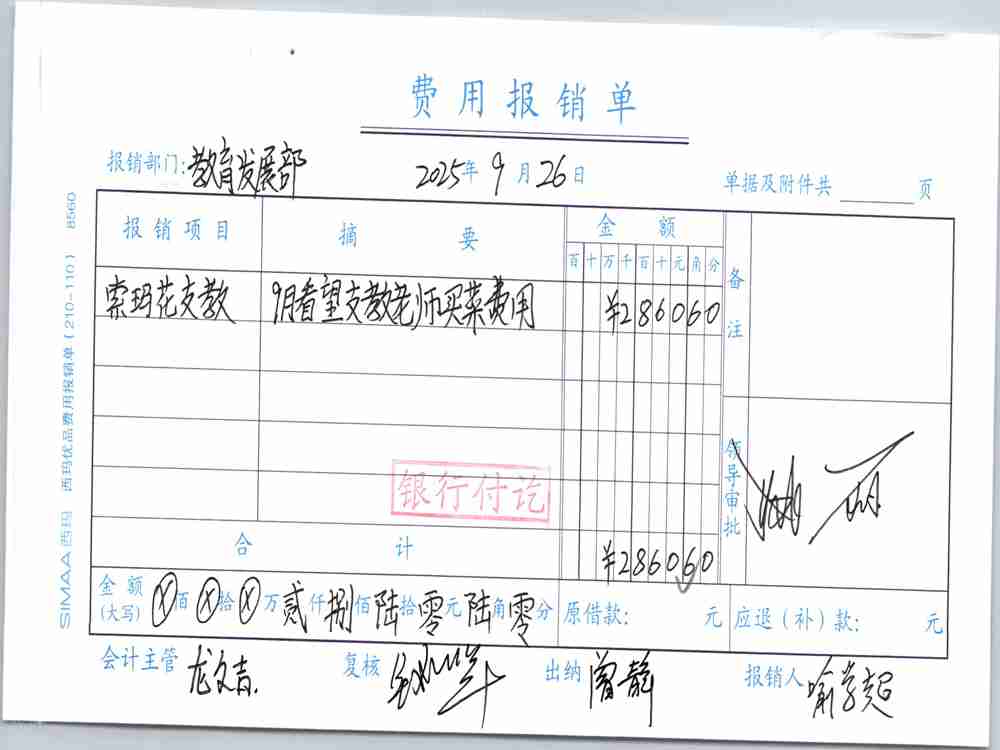 费用报销单
报销部门:教育发展部 2025年9月26日 单据及附件共 页
报销项目 摘要 金额 备注
百十万千百十元角分
索玛花支教 9月看望支教老师买菜费用 ¥286060
领导审批
银行付讫
合计 ¥286060
金额(大写) ⊗百⊗拾⊗万贰仟捌佰陆拾零元陆角零分 原借款: 元 应退(补)款: 元
会计主管 龙文吉 复核 出纳 曾静 报销人 喻学超
SIMAA西玛 西玛优品费用报销单(210-110) 8560